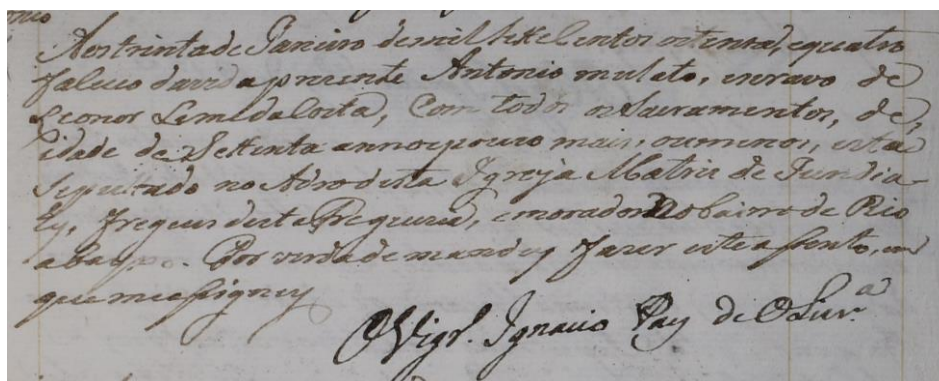 Aos trinta de Janeiro de mil sete centos outenta, e quatro
faleceo da vida prezente Antonio mulato, escravo de
Leonor Leme da Costa, Com todos os Sacramentos, de,
idade de Settenta annos pouco mais, ou menos, está
Sepultado no Adro desta Igreja Matriz de Jundia-
hy, freguez desta Freguezia, e morador no bairro de Rio
abayxo. Por verdade mandey fazer este assento, em
que me assigney
O Vigr. Ignacio Pay de Olivra